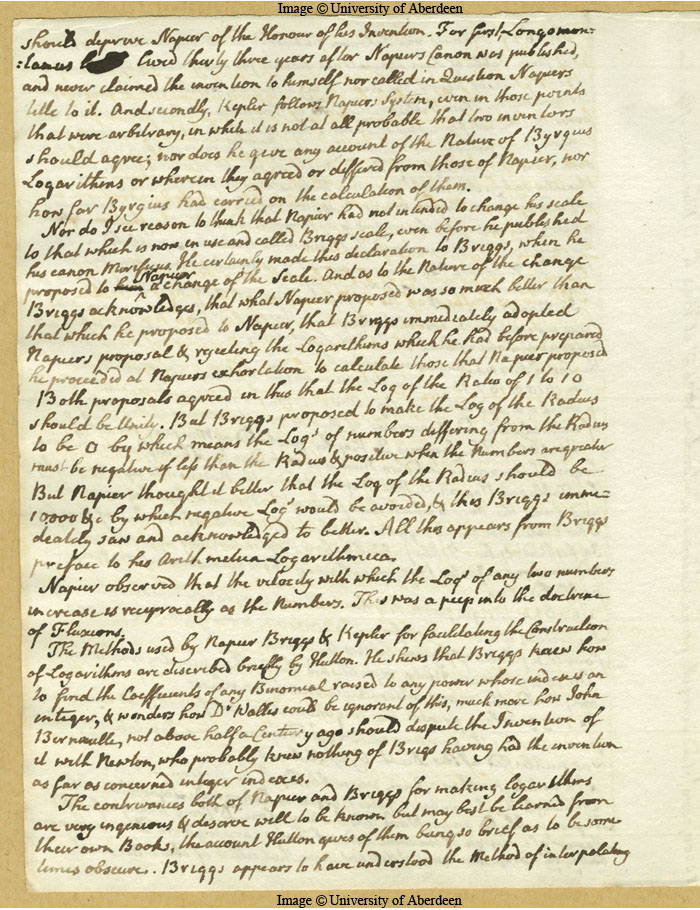 Image © University of Aberdeen
should deprive Napier of the Honour of his Invention. For first, Longomon=
=tanus lived thirty three years after Napiers Canon was published,
and never claimed the invention to himself nor called in Question Napiers
title to it. And secondly, Kepler follows Napiers System, even in those points
that were arbitrary, in which it is not at all probable that two inventors
should agree; nor does he give any account of the Nature of Byrgius
Logarithms or wherein they agreed or differed from those of Napier, nor
how far Byrgius had carried on the calculation of them.
Nor do I see reason to think that Napier had not intended to change his scale
to that which is now in use and called Briggs scale, even before he published
his canon Mirificus. He certainly made this declaration to Briggs, when he
proposed to Napier a change of the Scale. And as to the Nature of the change
Briggs acknowledges, that what Napier proposed was so much better than
that which he proposed to Napier, that Briggs immediately adopted
Napiers proposal & rejecting the Logarithms which he had before prepared
he proceeded at Napiers exhortation to calculate those that Napier proposed
Both proposals agreed in this that the Log of the Ratio of 1 to 10
should be Unity. But Briggs proposed to make the Log of the Radius
to be 0 by which means the Logs of numbers differing from the Radius
must be negative if less than the Radius & positive when the Numbers are greater
But Napier thought it better that the Log of the Radius should be
10,000 &c by which negative Logs would be avoided, & this Briggs imme=
diately saw and acknowledged to better. All this appears from Briggs
preface to his Arithmetica Logarithmica.
Napier observed that the velocity with which the Logs of any two numbers
increase is reciprocally as the Numbers. This was a peep into the doctrine
of Fluxions.
The Methods used by Napier Briggs & Kepler for facilitating the Construction
of Logarithms are discribed briefly by Hutton. He shews that Briggs knew how
to find the Coefficients of any Binomial raised to any power whose index is an
integer, & wonders how Dr Wallis could be ignorant of this, much more how John
Bernoulle, not above half a Century ago should dispute the Invention of
it with Newton, who probably knew nothing of Brigs having had the invention
as far as concerned integer indexes.
The contrivances both of Napier and Briggs for making logarithms
are very ingenious & deserve will to be known but may best be learned from
their own Books, the account Hutton gives of them being so brief as to be some
times obscure. Briggs appears to have understood the Method of interpolating
Image © University of Aberdeen